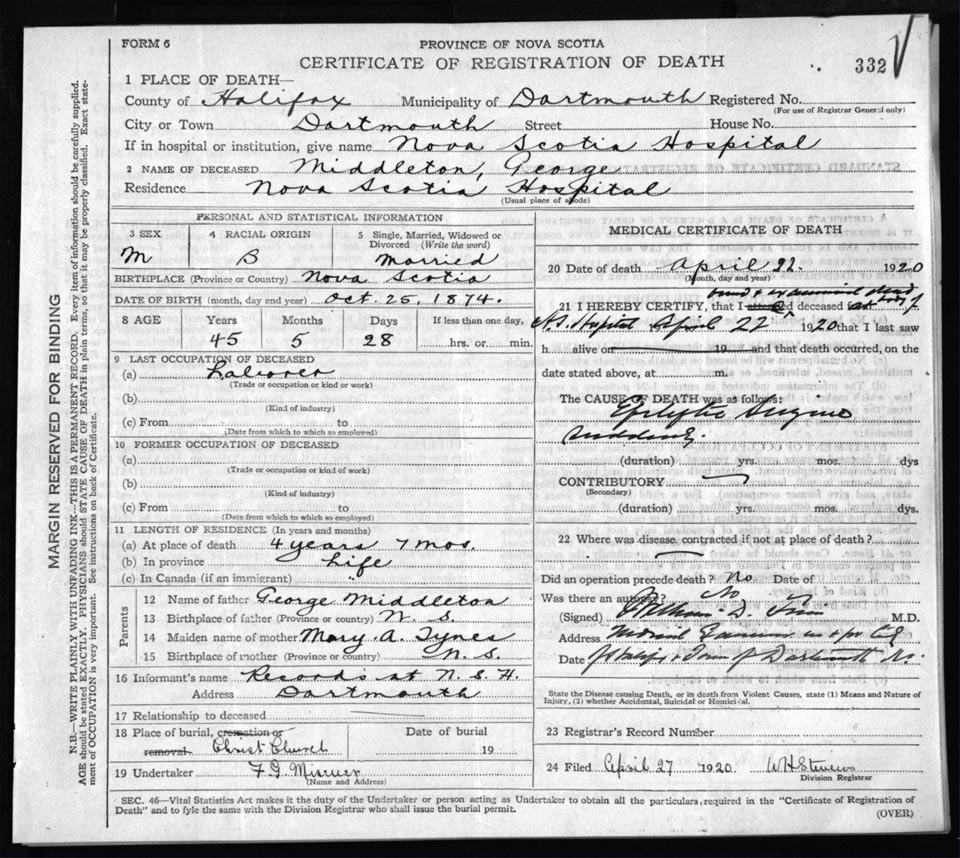 FORM 6
PROVINCE OF NOVA SCOTIA
CERTIFICATE OF REGISTRATION OF DEATH
332
1 PLACE OF DEATH—
County of Halifax Municipality of Dartmouth Registered No.
(For use of Registrar General only)
City or Town Dartmouth Street House No.
If in hospital or institution, give name Nova Scotia Hospital
2 NAME OF DECEASED Middleton, George
Residence Nova Scotia Hospital
(Usual place of abode)
MARGIN RESERVED FOR BINDING
N.B.—WRITE PLAINLY WITH UNFADING INK—THIS IS A PERMANENT RECORD. Every item of information should be carefully supplied.
AGE should be stated EXACTLY. PHYSICIANS should STATE CAUSE OF DEATH in plain terms, so that it may be properly classified. Exact state-
ment of OCCUPATION is very important. See instructions on back of Certificate.
PERSONAL AND STATISTICAL INFORMATION
3 SEX
M
4 RACIAL ORIGIN
B
5 Single, Married, Widowed or
Divorced (Write the word)
Married
BIRTHPLACE (Province or Country) Nova Scotia
DATE OF BIRTH (month, day and year) Oct. 25, 1874.
8 AGE Years Months Days If less than one day,
45 5 28 hrs. or min.
9 LAST OCCUPATION OF DECEASED
(a) Laborer
(Trade or occupation or kind or work)
(b)
(Kind of industry)
(c) From to
(Date from which to which so employed)
10 FORMER OCCUPATION OF DECEASED
(a)
(Trade or occupation or kind of work)
(b)
(Kind of industry)
(c) From to
(Date from which to which so employed)
11 LENGTH OF RESIDENCE (In years and months)
(a) At place of death 4 years 7 mos.
(b) In province Life
(c) In Canada (if an immigrant) "
Parents
12 Name of father George Middleton
13 Birthplace of father (Province or country) N. S.
14 Maiden name of mother Mary A. Tynes
15 Birthplace of mother (Province or country) N. S.
16 Informant's name Records at N. S. H.
Address Dartmouth
17 Relationship to deceased
18 Place of burial, cremation or Date of burial
removal Christ Church 19
19 Undertaker F. G.
(Name and Address)
MEDICAL CERTIFICATE OF DEATH
20 Date of death April 22. 1920
(Month, day and year)
21 I HEREBY CERTIFY, that I attended deceased
N.S. Hospital April 22 1920 that I last saw
h alive on 19 and that death occurred, on the
date stated above, at m.
The CAUSE OF DEATH was as follows:
suddenly.
(duration) yrs. mos. dys
CONTRIBUTORY
(Secondary)
(duration) yrs. mos. dys.
22 Where was disease contracted if not at place of death?
Did an operation precede death? No Date of
Was there an autopsy? No
(Signed) William D. M.D.
Address Medical
Date
State the Disease causing Death, or in death from Violent Causes, state (1) Means and Nature of
Injury, (2) whether Accidental, Suicidal or Homicidal.
23 Registrar's Record Number
24 Filed April 27 1920
Division Registrar
SEC. 46—Vital Statistics Act makes it the duty of the Undertaker or person acting as Undertaker to obtain all the particulars required in the "Certificate of Registration of
Death" and to fyle the same with the Division Registrar who shall issue the burial permit.
(OVER)